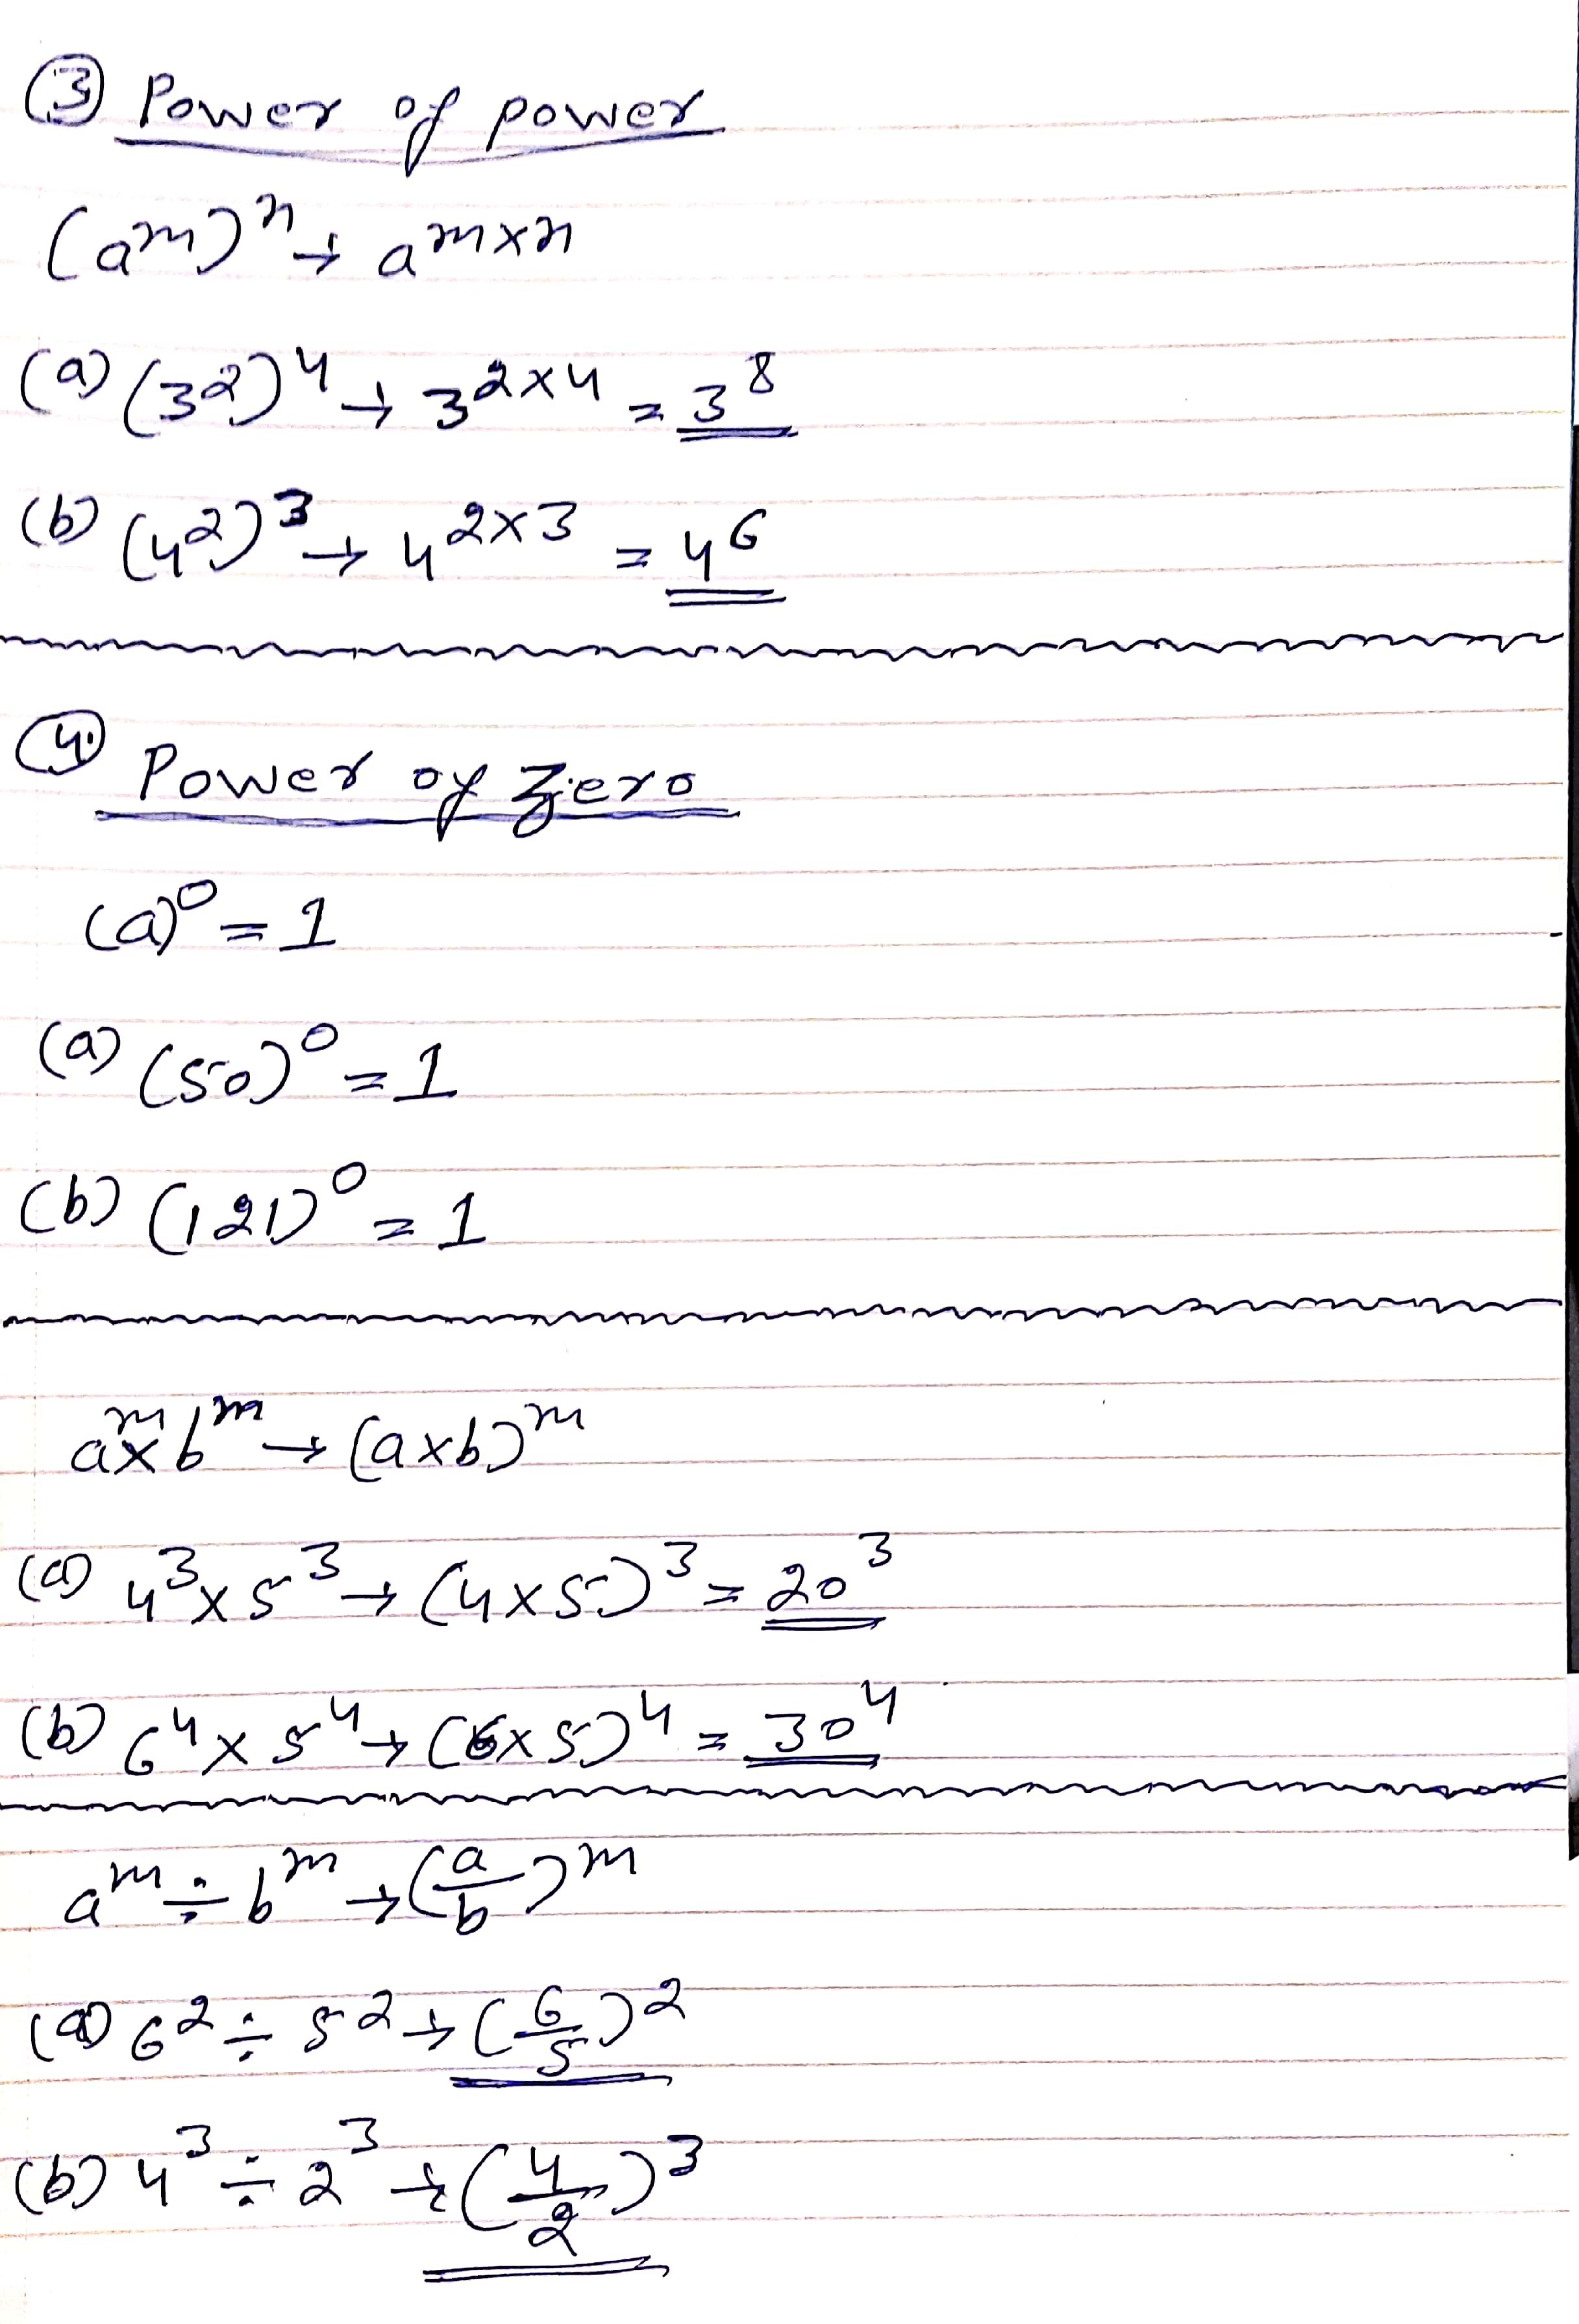 ③ Power of power
(a^m)^n → a^m×n
(a) (3^2)^4 → 3^2×4 = 3^8
(b) (4^2)^3 → 4^2×3 = 4^6
④ Power of Zero
(a)^0 = 1
(a) (50)^0 = 1
(b) (121)^0 = 1
a^m × b^m → (a×b)^m
(a) 4^3 × 5^3 → (4×5)^3 = 20^3
(b) 6^4 × 5^4 → (6×5)^4 = 30^4
a^m ÷ b^m → (a/b)^m
(a) 6^2 ÷ 5^2 → (6/5)^2
(b) 4^3 ÷ 2^3 → (4/2)^3